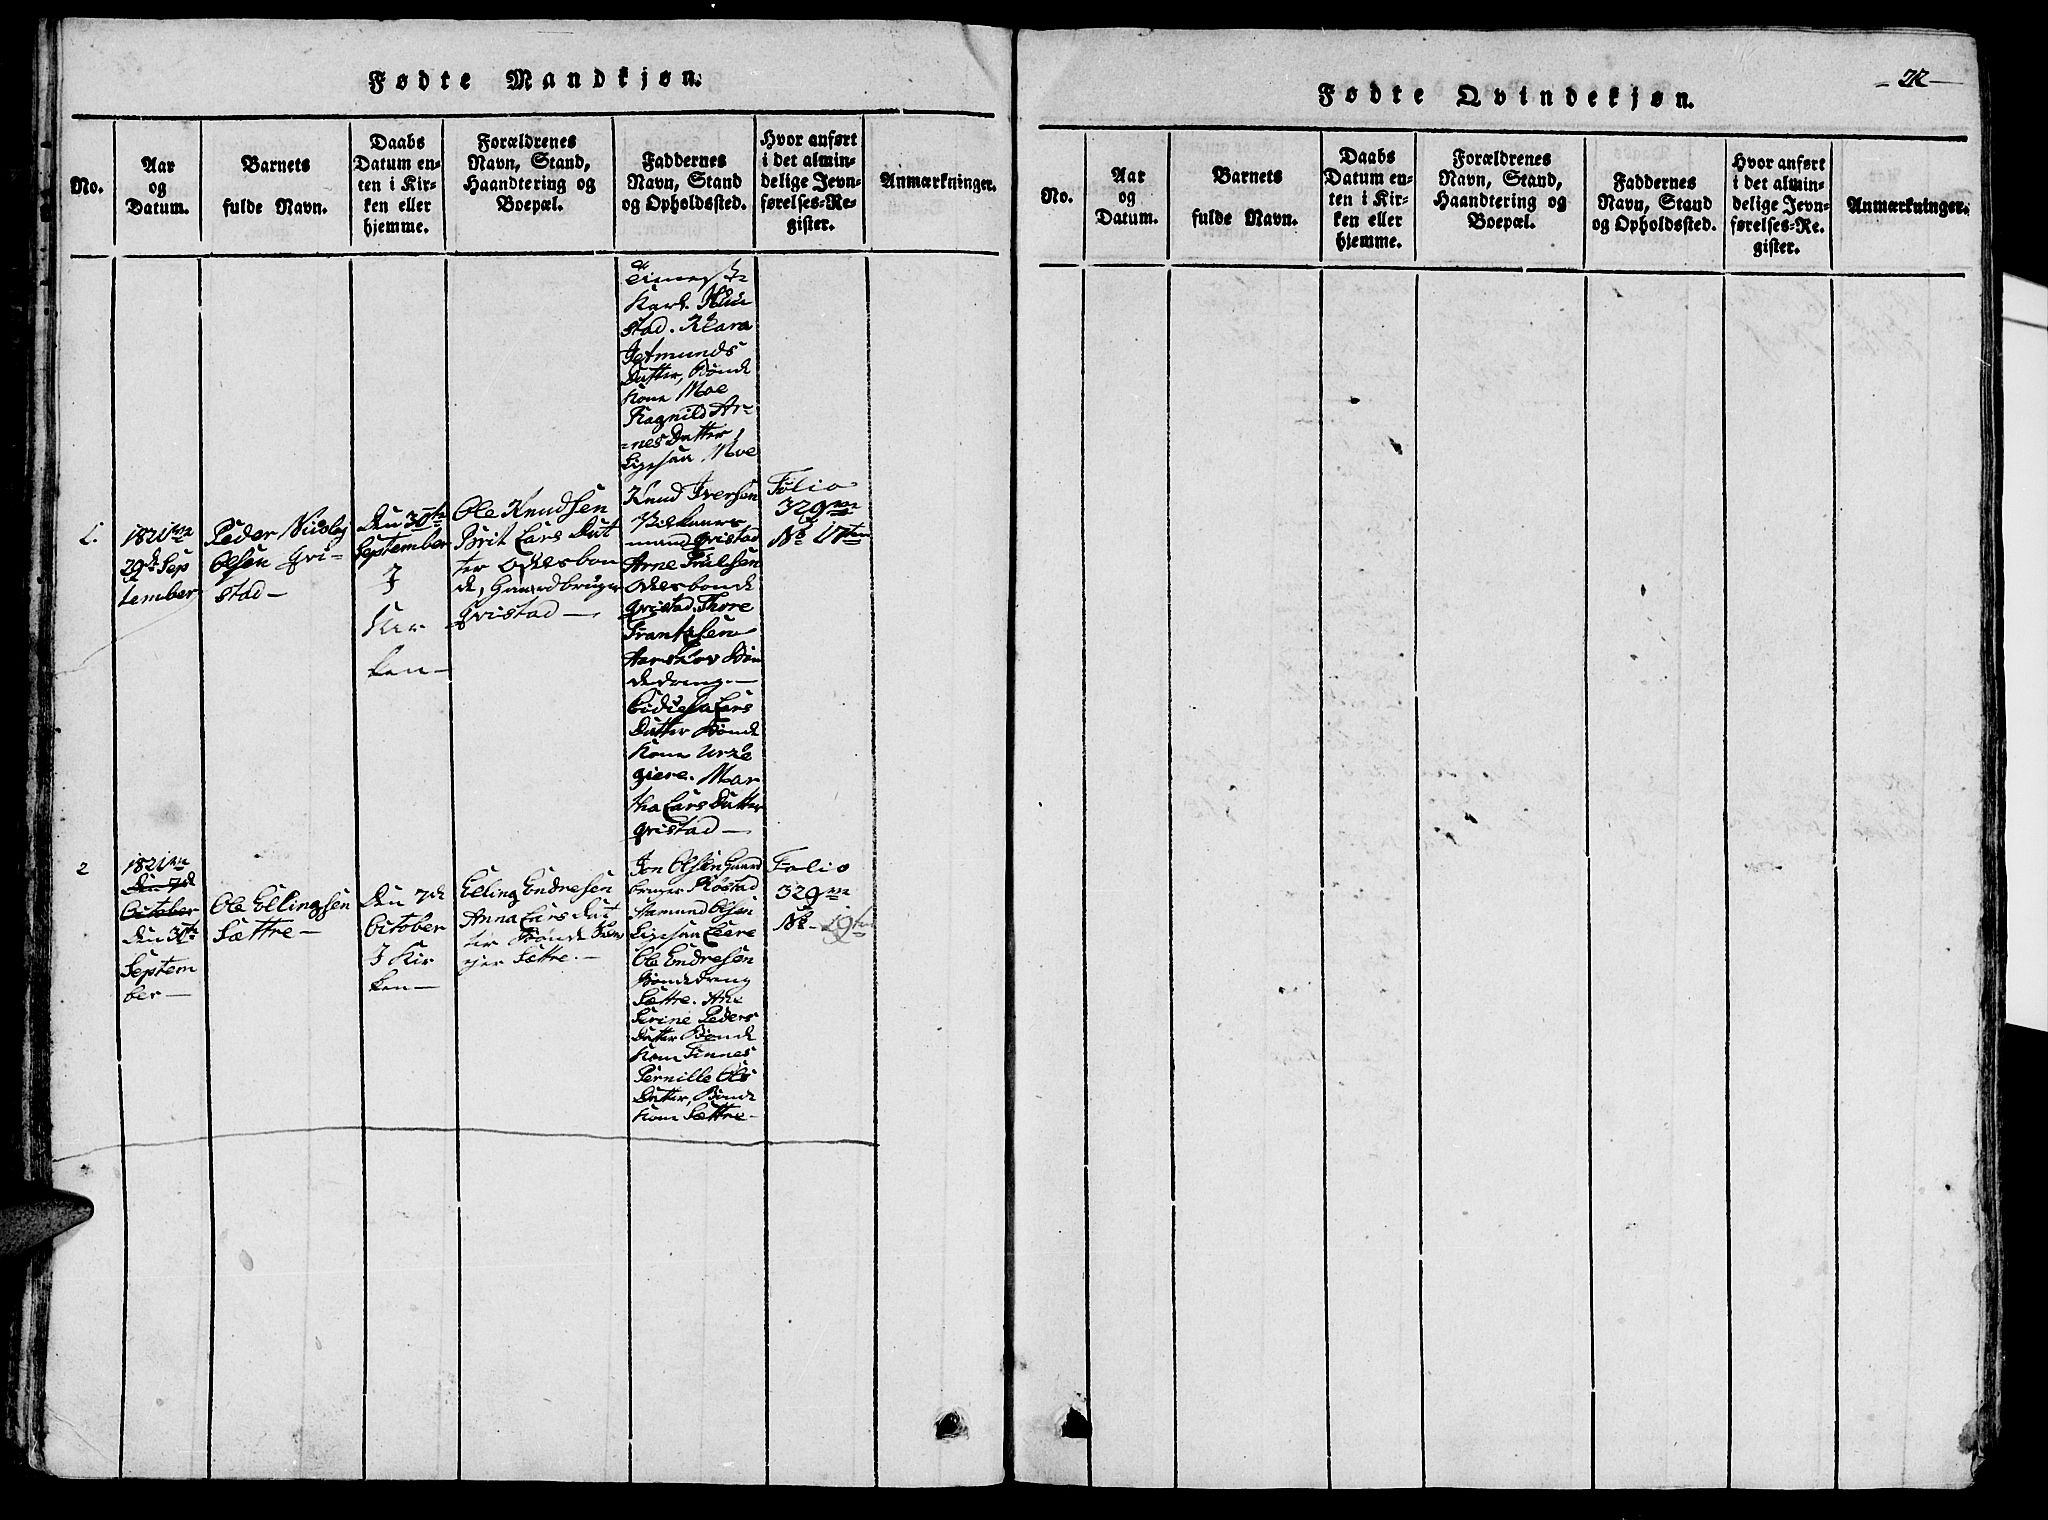 Fødte Mandkjøn.
No.
Aar
og
Datum.
Barnets
fulde Navn.
Daabs
Datum en-
ten i Kir-
ken eller
hjemme.
Forældrenes
Navn, Stand,
Haandtering og
Boepæl.
Faddernes
Navn, Stand
og Opholdssted.
Hvor anført
i det almin-
delige Jevn-
førelses-Re-
gister.
Anmærkninger.
stad. Klara
Jetmunds
Datter, Bonde
Kone Moe
Ragnild Ar=
=nes Datter
Ligesaa, Moe
1.
1821
29de Sep
tember
Peder Nicolay
Olsen Qvi=
stad—
Den 30te
September
I
Kir
ken—
Ole Knudsen
Brit Lars Dat
ter Odelsbon
de, Gaardbruger
Qvistad—
Knud Iversen
mand Qvistad
Arne Truelsen
Odelsbonde
Qvistad. Thore
Frantzsen
Aarskov Bøn
dedreng.—
Lars
Datter Bonde
Kone
giere. Mar
tha Lars Datter
Qvistad—
Folio
329
No 17ten
2
1821
Den 7de
October
Den 30te
Septem
ber—
Ole Ellingsen
Sættre—
Den 7de
October
I Kir
ken—
Elling Endresen
Anna Lars Dat
ter Bonde Folk
Sættre.—
Jon Olsen Gaard
bruger Røstad
Aamund Olsen
Ligesaa Leere
Ole Endresen
Bondedreng
Sættre. Ane
Serine Peders
Datter Bonde
Kone Finnes
Pernille Ols
Datter, Bonde
Kone Sættre—
Folio
329
No 19ten
Fødte Qvindekjøn.
– 22 –
No.
Aar
og
Datum.
Barnets
fulde Navn.
Daabs
Datum en-
ten i Kir-
ken eller
hjemme.
Forældrenes
Navn, Stand,
Haandtering og
Boepæl.
Faddernes
Navn, Stand
og Opholdssted.
Hvor anført
i det almin-
delige Jevn-
førelses-Re-
gister.
Anmærkninger.